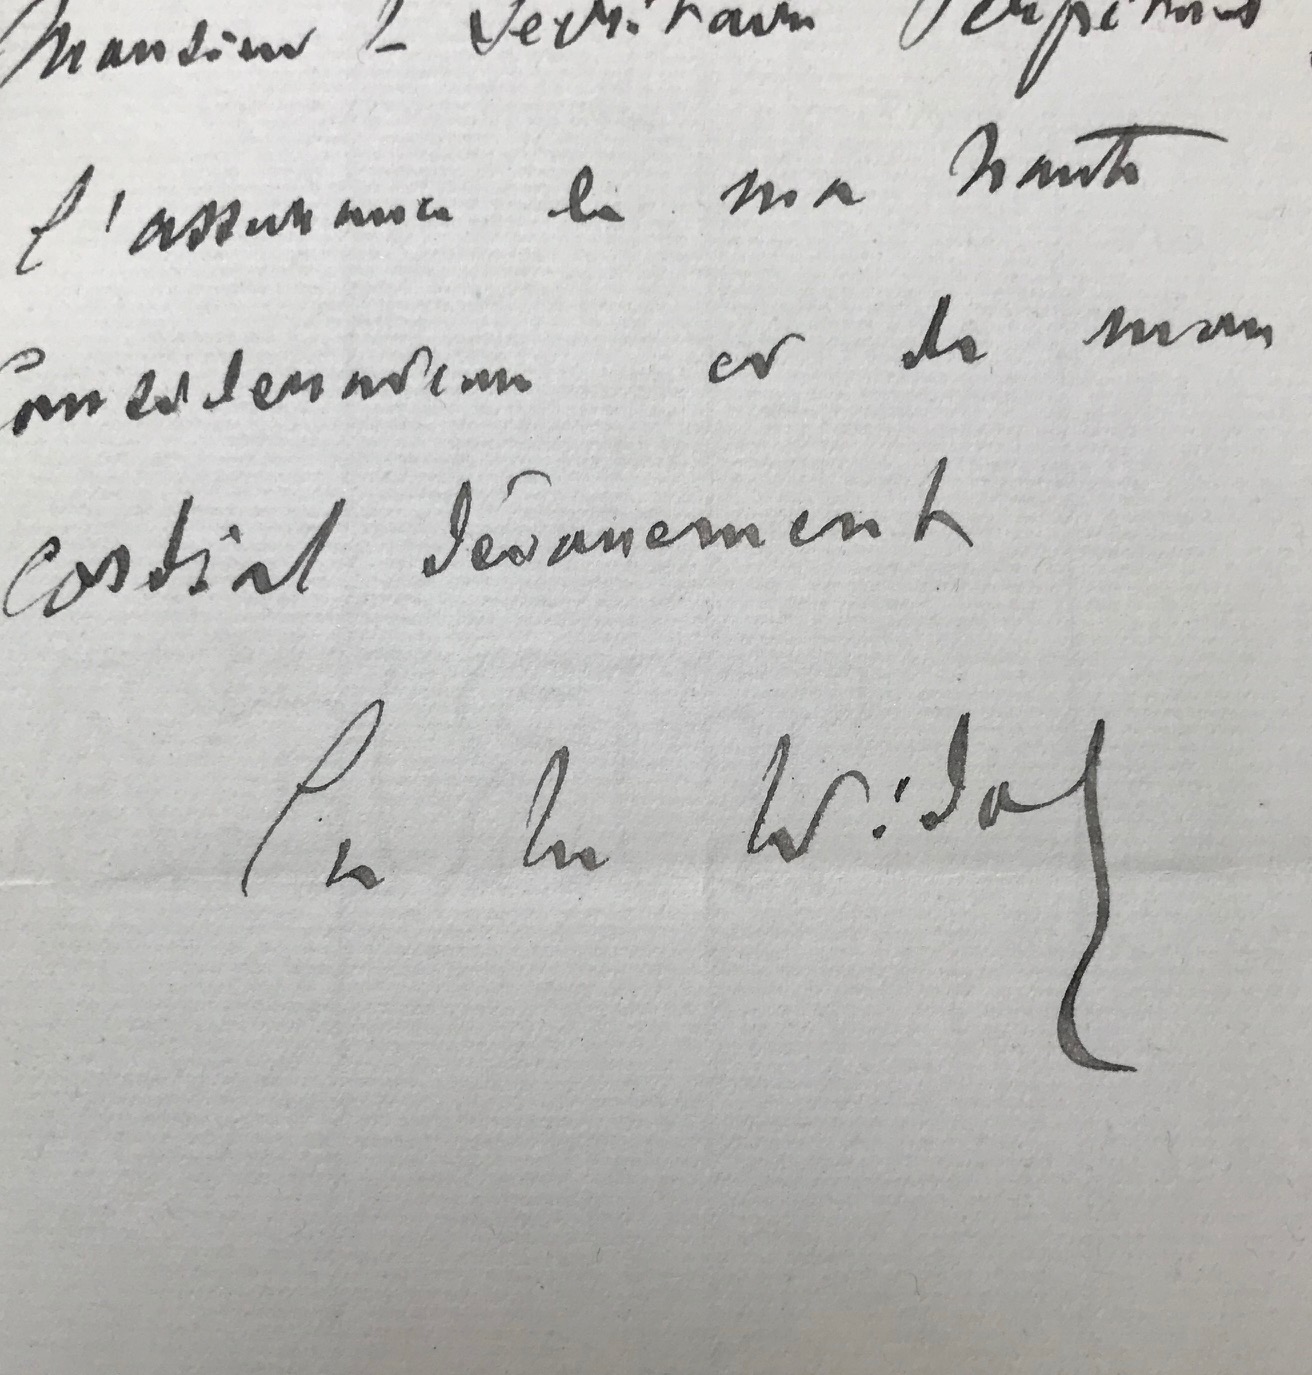 Monsieur le Secrétaire Perpétuel,
l'assurance de ma haute
Considération et de mon
cordial dévouement
Ch M Widor